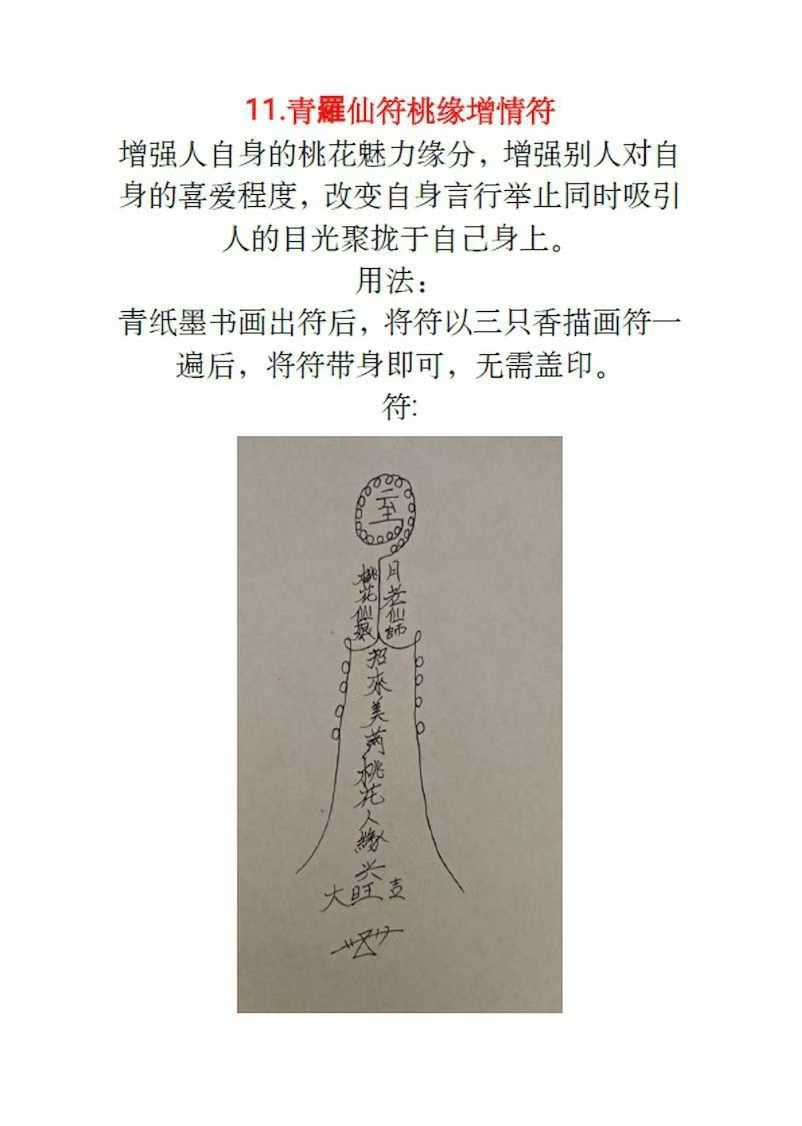 11.青羅仙符桃缘增情符
增强人自身的桃花魅力缘分，增强别人对自
身的喜爱程度，改变自身言行举止同时吸引
人的目光聚拢于自己身上。
用法：
青纸墨书画出符后，将符以三只香描画符一
遍后，将符带身即可，无需盖印。
符:
月老仙師
桃花仙
招來美
桃花人緣
兴
大旺